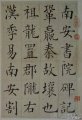 南安書院碑記
鞏鼐秦故壤也
祖龍置郡隴右
漢季易南安割